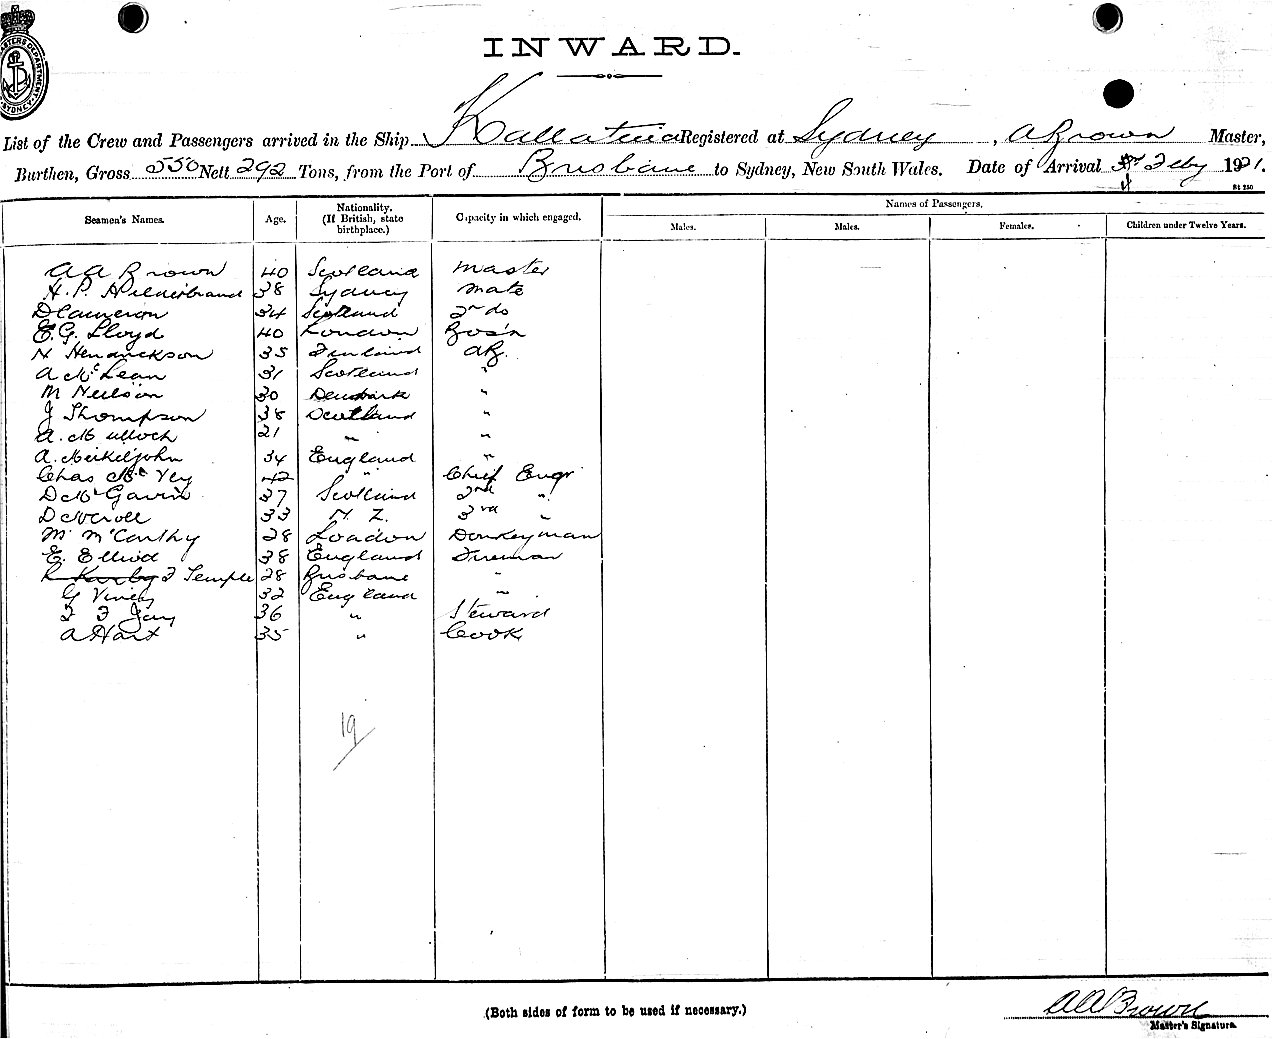 INWARD.
List of the Crew and Passengers arrived in the Ship Kallatina Registered at Sydney, A Brown Master,
Burthen, Gross 550 Nett 292 Tons, from the Port of Brisbane to Sydney, New South Wales. Date of Arrival Feby 1921.
Seamen's Names. Age. Nationality. (If British, state birthplace.) Capacity in which engaged. Names of Passengers.
Males. Males. Females. Children under Twelve Years.
A A Brown 40 Scotland Master
H. P. Hilderbrand 38 Sydney Mate
D Cameron 34 Scotland 2nd do
E. G. Lloyd 40 London Bos'n
N Hendrickson 35 Finland AB.
A McLean 31 Scotland "
M Neilson 30 Denmark "
J Thompson 38 Scotland "
A. McCulloch 21 " "
A. Meikeljohn 34 England "
Chas McVey 42 " Chief Engr
D McGavin 37 Scotland 2nd "
D 33 N. Z. 3rd "
M McCarthy 28 London Donkeyman
E. 38 England Fireman
F Temple 28 Brisbane "
G 32 England "
36 " Steward
A Hart 35 " Cook
19
(Both sides of form to be used if necessary.)
AA Brown
Master's Signature.